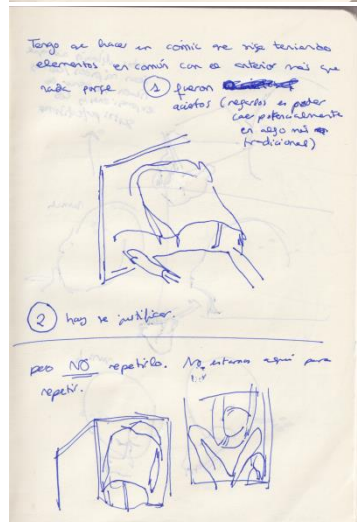 Tengo que hacer un cómic que siga teniendo
elementos en común con el anterior más que
nada porque ① fueron
aciertos (negarlos es poder
caer potencialmente
en algo más
tradicional)
② hay que justificar.
pero NO repetirlo. No estamos aquí para
repetir.